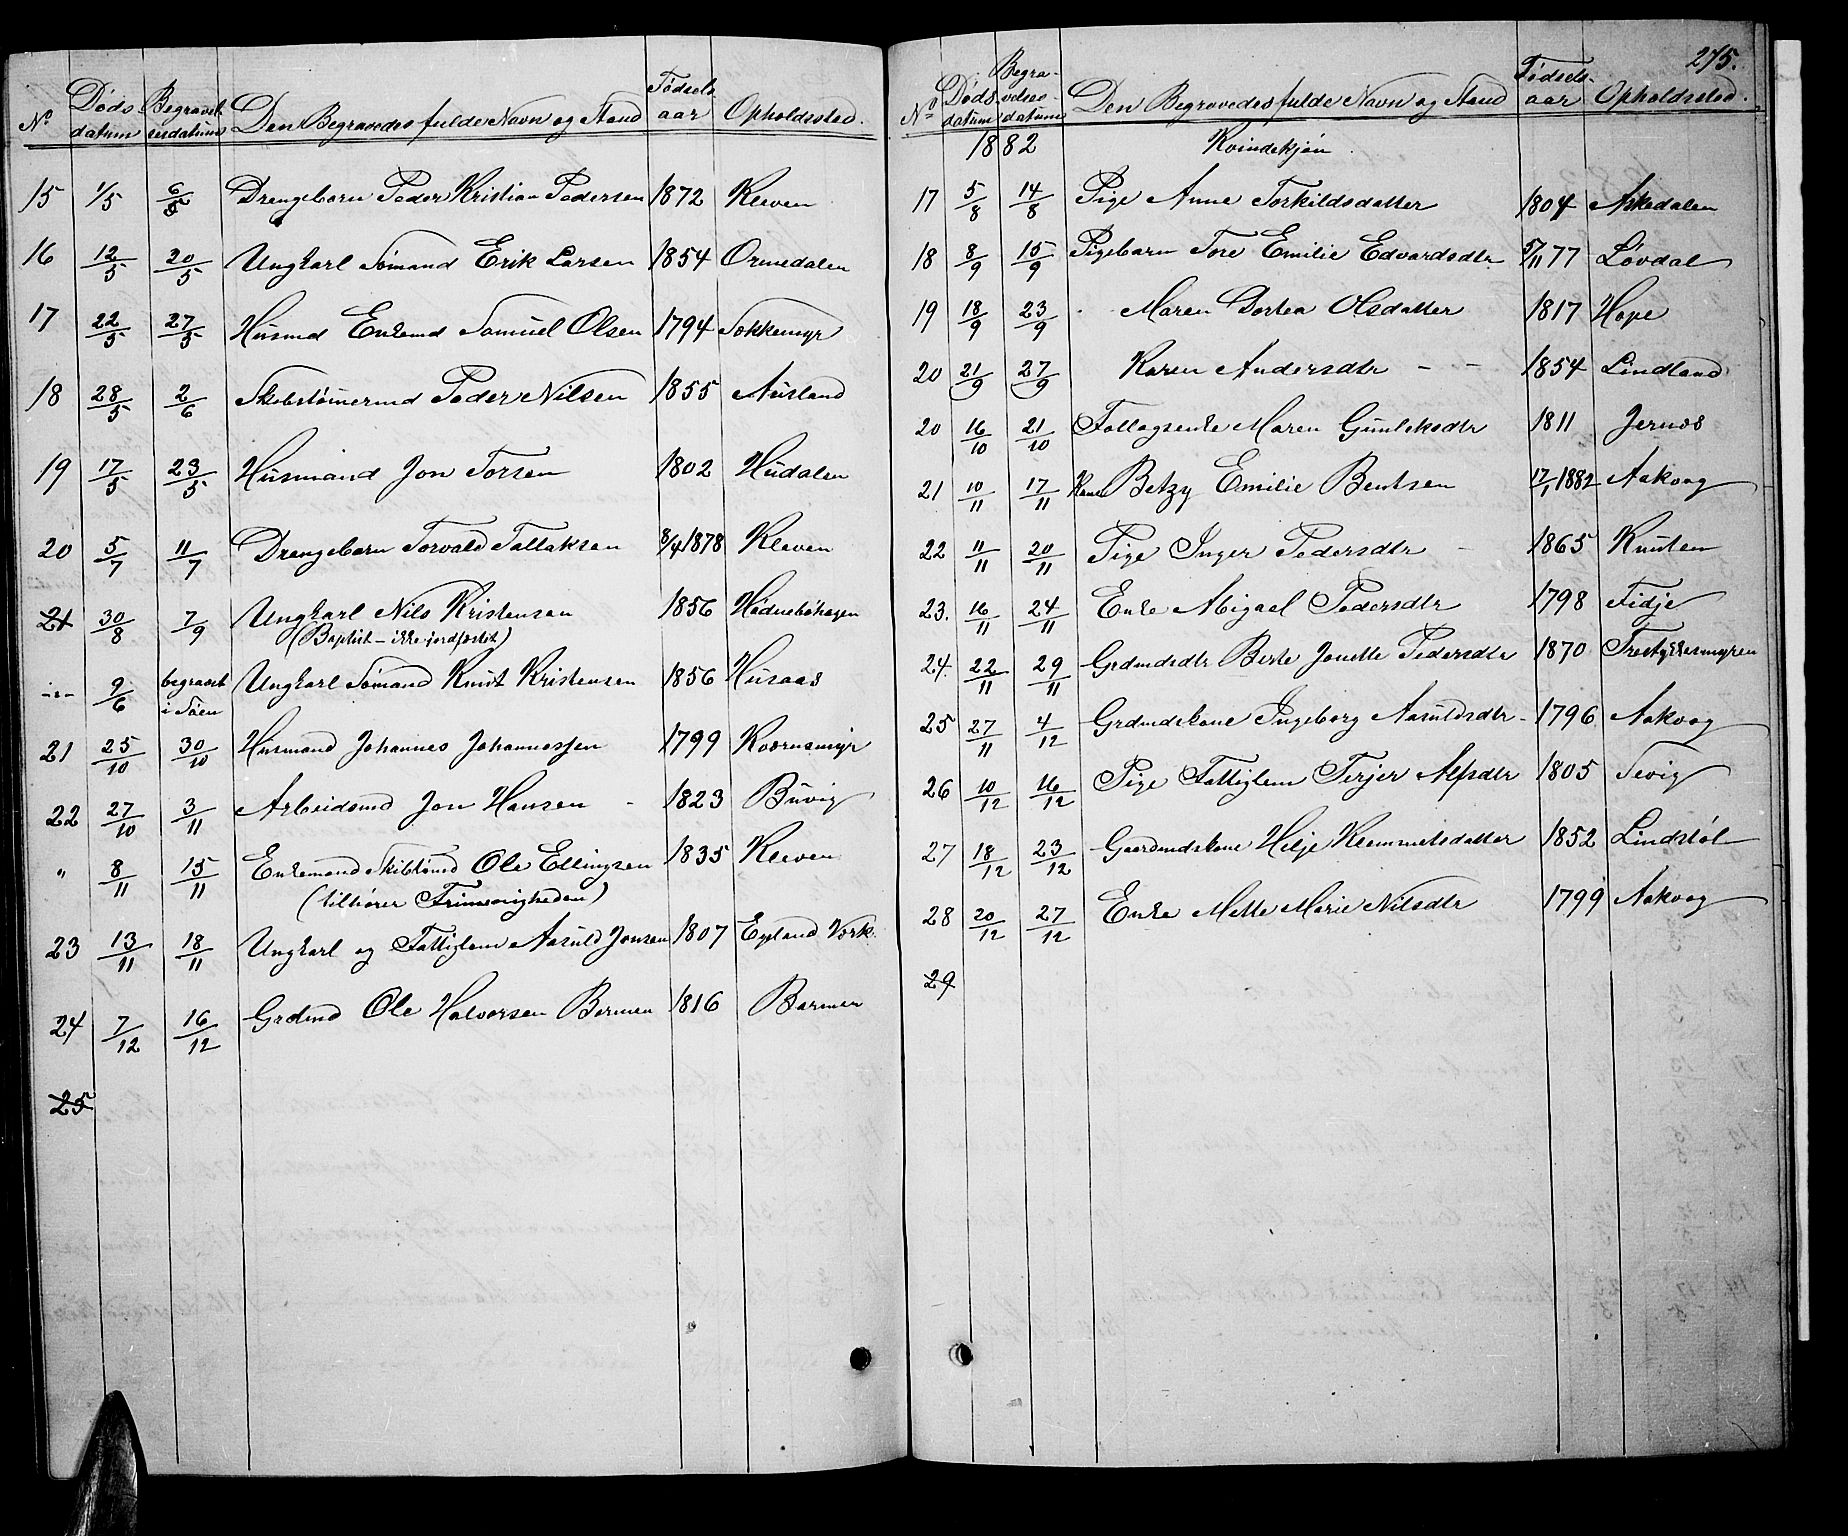 No Døds datum Begravel sesdatum Den Begravedes fulde Navn og Stand Fødsels aar Opholdssted.
15 1/5 6/5 Drengebarn Peder Kristian Pedersen 1872 Kleven
16 12/5 20/5 Ungkarl Sømand Erik Larsen 1854 Ormedalen
17 22/5 27/5 Husmd Enkemd Samuel Olsen 1794 Sokkemyr
18 28/5 2/6 Skibstømermd Peder Nilsen 1855 Ausland
19 17/5 23/5 Husmand Jon Torsen 1802 Hudalen
20 5/7 11/7 Drengebarn Torvald Tallaksen 8/4 1878 Kleven
21 30/8 7/9 Ungkarl Nils Kristensen 1856 Hødnebøhagen
(Baptist - ikke jordfæstet)
-"- 9/6 begravet i Søen Ungkarl Sømand Knut Kristensen 1856 Husaas
21 25/10 30/10 Husmand Johannes Johannessen 1799 Kværnsmyr
22 27/10 3/11 Arbeidsmd Jon Hansen - 1823 Buvig
" 8/11 15/11 Enkemand Skibtømd Ole Ellingsen 1835 Kleven
(tilhører Frimenigheden)
23 13/11 18/11 Ungkarl og Fattiglem Aasuld Jonsen 1807 Egeland Værk.
24 7/12 16/12 Grdmd Ole Halvorsen Barmen 1816 Barmen
25
275.
No Døds datum Begra- velses- datum Den Begravedes fulde Navn og Stand Fødsels- aar Opholdssted.
1882 Kvindekjøn
17 5/8 14/8 Pige Anne Torkildsdatter 1804 Askedalen
18 8/9 15/9 Pigebarn Tore Emilie Edvardsdtr 5/11 77 Løvdal
19 18/9 23/9 Maren Dortea Olsdatter 1817 Hope
20 21/9 27/9 Karen Andersdtr - - 1854 Lindland
20 16/10 21/10 Fattigenke Maren Gunleksdtr 1811 Jernæs
21 10/11 17/11 Betzy Emilie Bentsen 17/1 1882 Aakvag
22 11/11 20/11 Pige Inger Pedersdtr - 1865 Knuten
23. 16/11 24/11 Enke Abigael Pedersdtr 1798 Fidje
24. 22/11 29/11 Grdmdsdtr Berte Jonette Pedersdtr 1870 Trestykkesmyren
25 27/11 4/12 Grdmdskone Ingeborg Aasuldsdtr - 1796 Aakvag
26 10/12 16/12 Pige Fattiglem Terjer Alfsdtr 1805 Sevig
27 18/12 23/12 Gaardmdskone Helje Klemmetsdatter 1852 Lindstøl
28 20/12 27/12 Enke Mette Marie Nilsdtr 1799 Aakvag
29